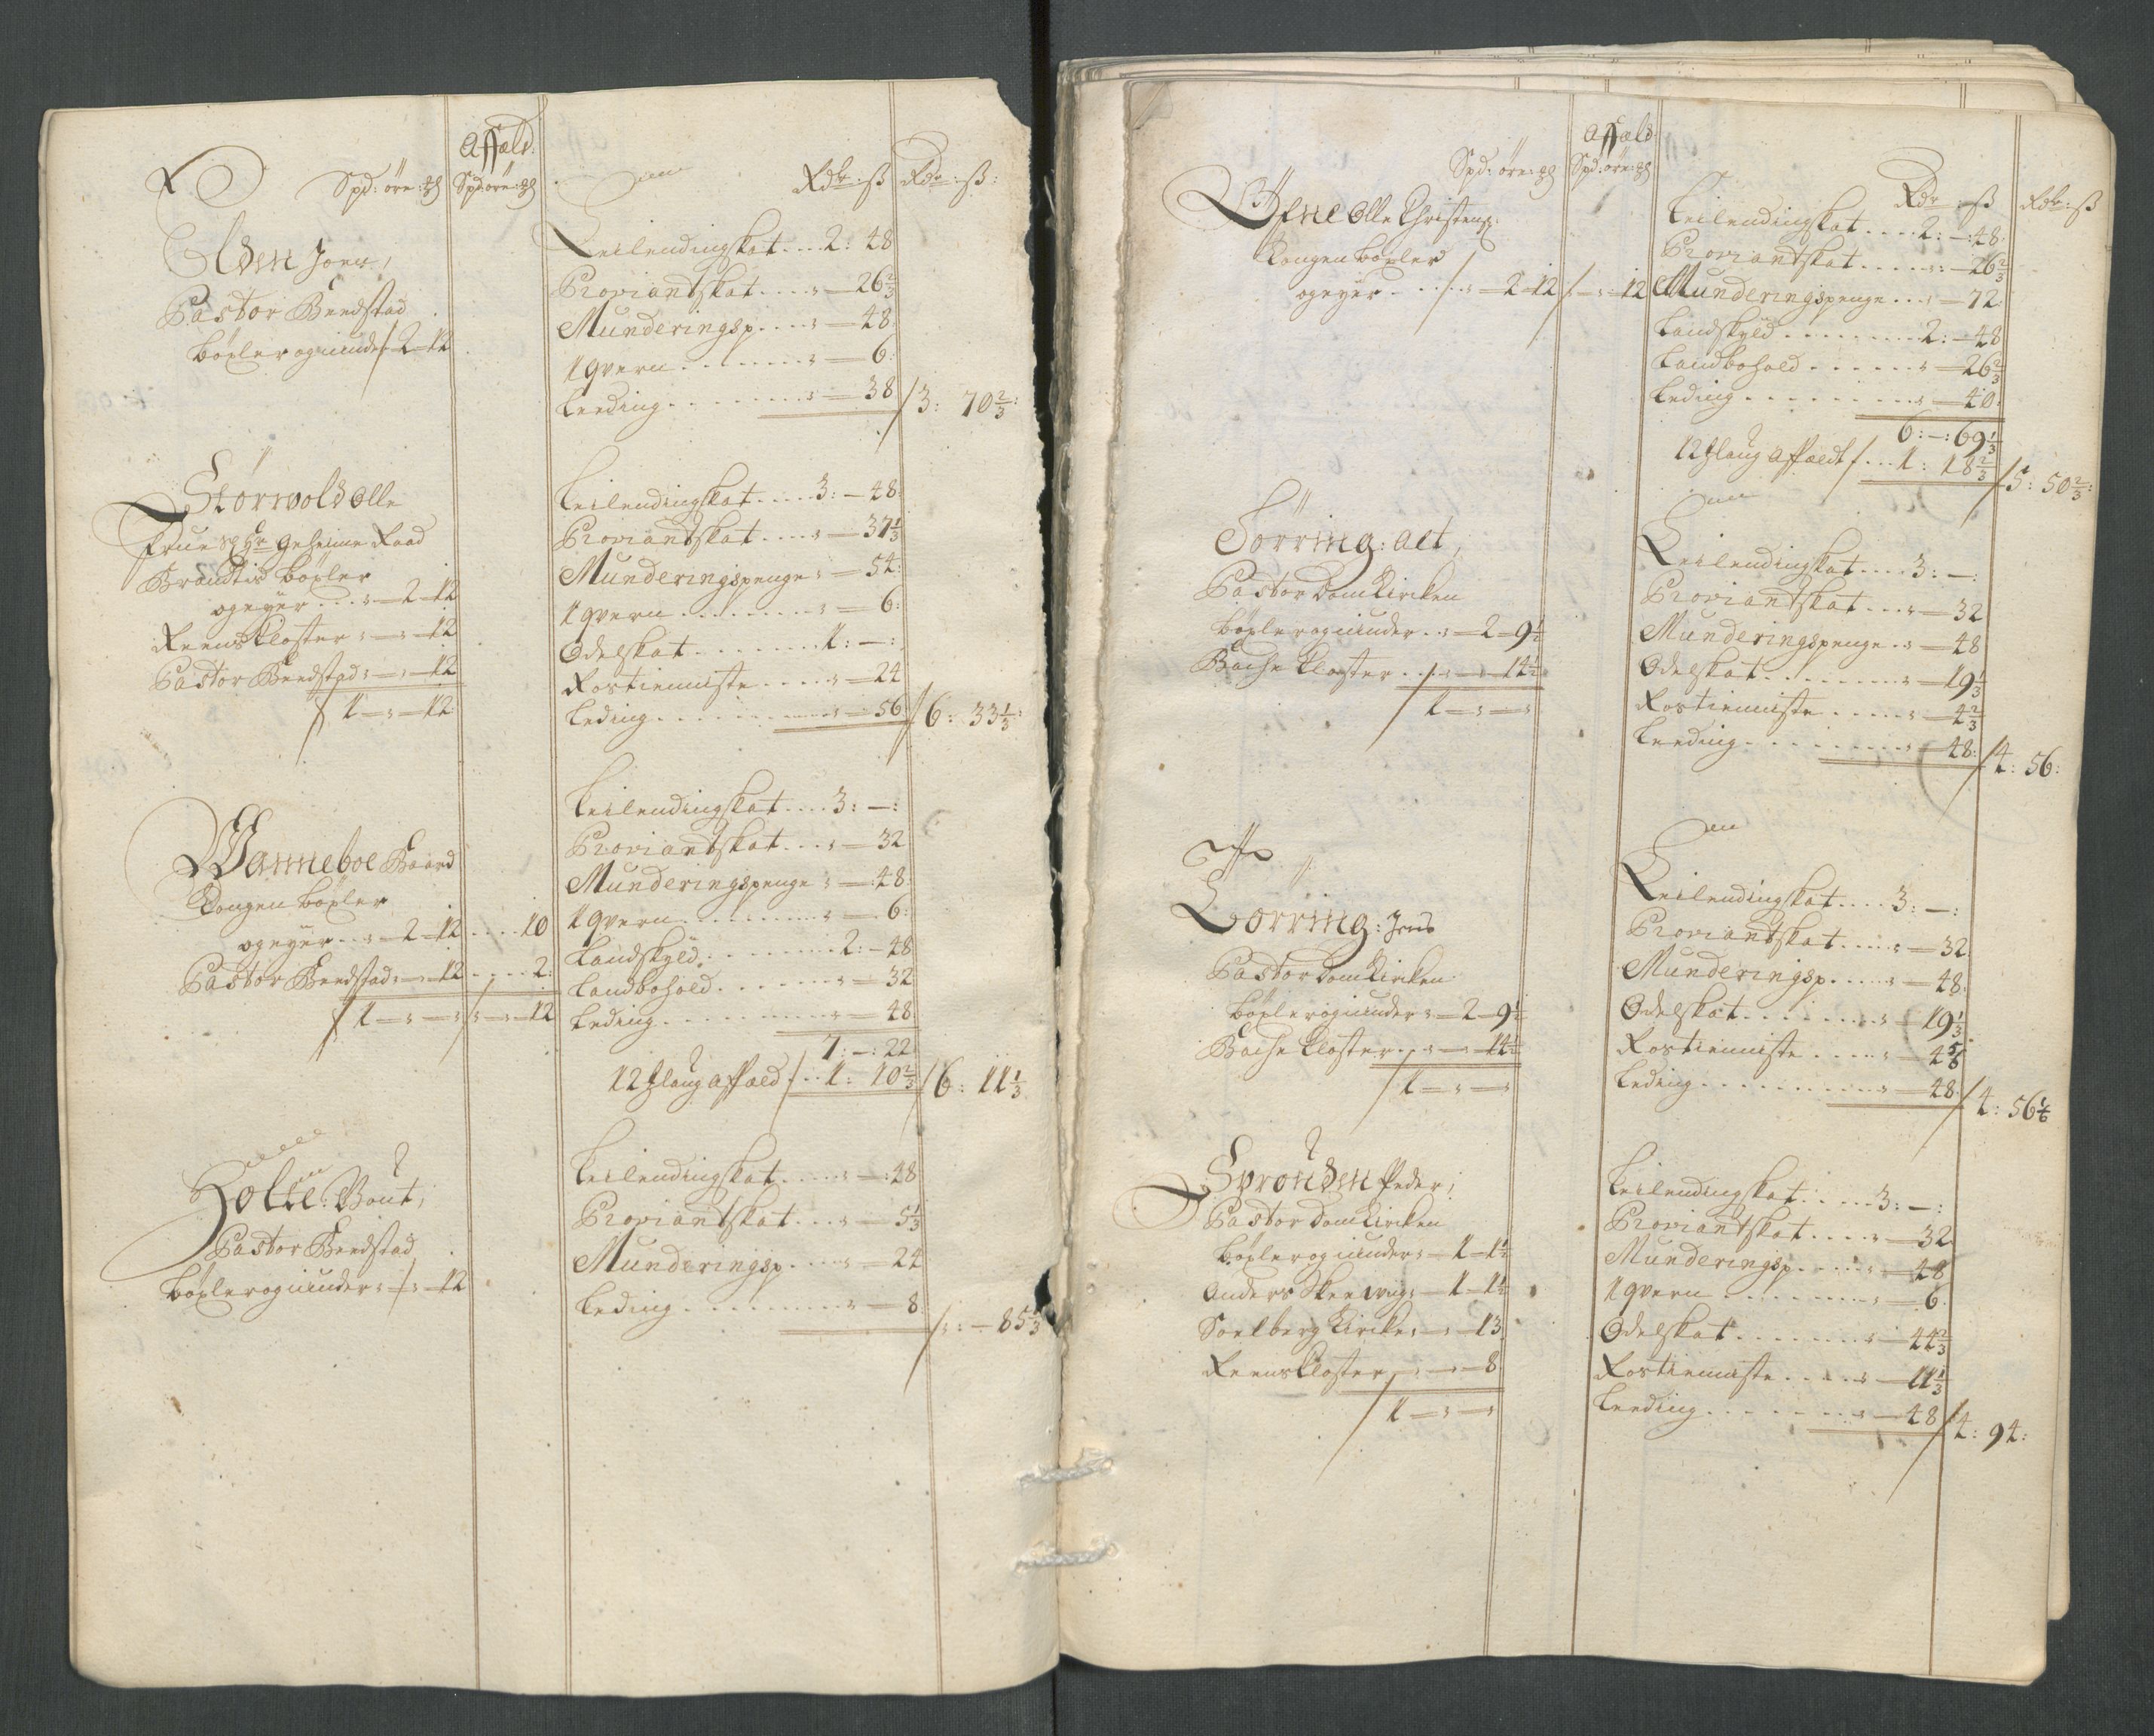 Affæld:
Spd: öre: ₰ Spd: öre: ₰ Rdr: ß Rdr: ß:
Elden Joen,
Pastor Beedstad
böxler og raader / 2 — 12
Leilendingskat .... 2: 48
Proviantskat .... „ — 26 2/3
Munderingsp. ... „ — 48
1 qvern ....... „ — 6:
Leeding ........ „ — 38 / 3: 70 2/3:
Störvold Olle
Frue Sl: Hr Geheime Raad
Brandtis böxler
og eyer ... „ — 2 — 12
Reens kloster „ — „ — 12
Pastor Beedstad „ — „ — 12
/ 1 — „ — 12
Leilendingskat .... 3: — 48
Proviantskat .... „ — 37 1/3
Munderingspenge „ — 54:
1 qvern ........ „ — 6:
Odelskat ........ 1: — :
Rostieniste ..... „ — 24
Leding ......... „ — 56 / 6: 33 1/3:
Wanneboe Baard
Kongen böxler
og eyer ... „ — 2 — 12 .... 10
Pastor Beedstad „ — „ — 12 .... 2:
/ 1 — „ — „ / „ — „ — 12
Leilendingskat .... 3: — :
Proviantskat .... „ — 32
Munderingspenge „ — 48
1 qvern ........ „ — 6:
Landskyld ........ 2: — 48
Landbohold ....... „ — 32
Leding ......... „ — 48
7: — : 22
12 ₰ laug affæld / .. 1: 10 2/3 / 6: 11 1/3
Holte: Bout,
Pastor Beedstad
böxler og raader „ / „ — 12
Leilendingskat .... „ — 48
Proviantskat .... „ — 5 1/3
Munderingsp. .... „ — 24
Leding ......... „ — 8 / „: — 85 1/3
Affæld:
Spd: öre: ₰ Spd: öre: ₰ Rdr: ß Rdr: ß
Olle Christens:
Kongen böxler
og eyer .... / „ — 2 — 12 / „ — „ 12
Leilendingskat .... 2: — 48
Proviantskat ..... „ — 26 2/3
Munderingspenge ... „ — 72
Landskyld ........ 2: — 48
Landbohold ...... „ — 26 2/3
Leding ......... „ — 40
6: — : 69 1/3
12 ₰ laug affældt / ... 1: 18 2/3 / 5: 50 2/3:
Sörring: Alt,
Pastor Domkircken
böxler og raader .. „ — 2 — 9 1/2
Backe kloster ... „ — „ — 14 1/2
/ 1 — „ — „
Leilendingskat .... 3: — :
Proviantskat ... „ — 32
Munderingspenge .. „ — 48
Odelskat ........ „ — 19 1/3
Rostieniste ..... „ — 4 2/3
Leeding ........ „ — 48: / 4: 56:
Sörring: Jens
Pastor Domkircken
böxler og raader „ — 2 — 9 1/2
Backe kloster .. „ — „ — 14 1/2
/ 1 — „ — „
Leilendingskat .... 3: — :
Proviantskat .... „ — 32
Munderingsp. .... „ — 48
Odelskat ........ „ — 19 1/3
Rostieniste ..... „ — 4 5/6
Leding ......... „ — 48 / 4: 56 1/6
Svrouden Peder,
Pastor Domkircken
böxler og raader „ — 1 — 1 1/2
Anders Skeewig „ — 1 — 1 1/2
Soelberg kircke „ — „ — 13
Reens kloster „ — „ — 8
/ 1 — „ — „
Leilendingskat .... 3: — :
Proviantskat .... „ — 32
Munderingsp. .... „ — 48
1 qvern ........ „ — 6
Odelskat ........ „ — 44 2/3
Rostieniste ..... „ — 11 1/3
Leeding ......... „ — 48 / 4: 94: